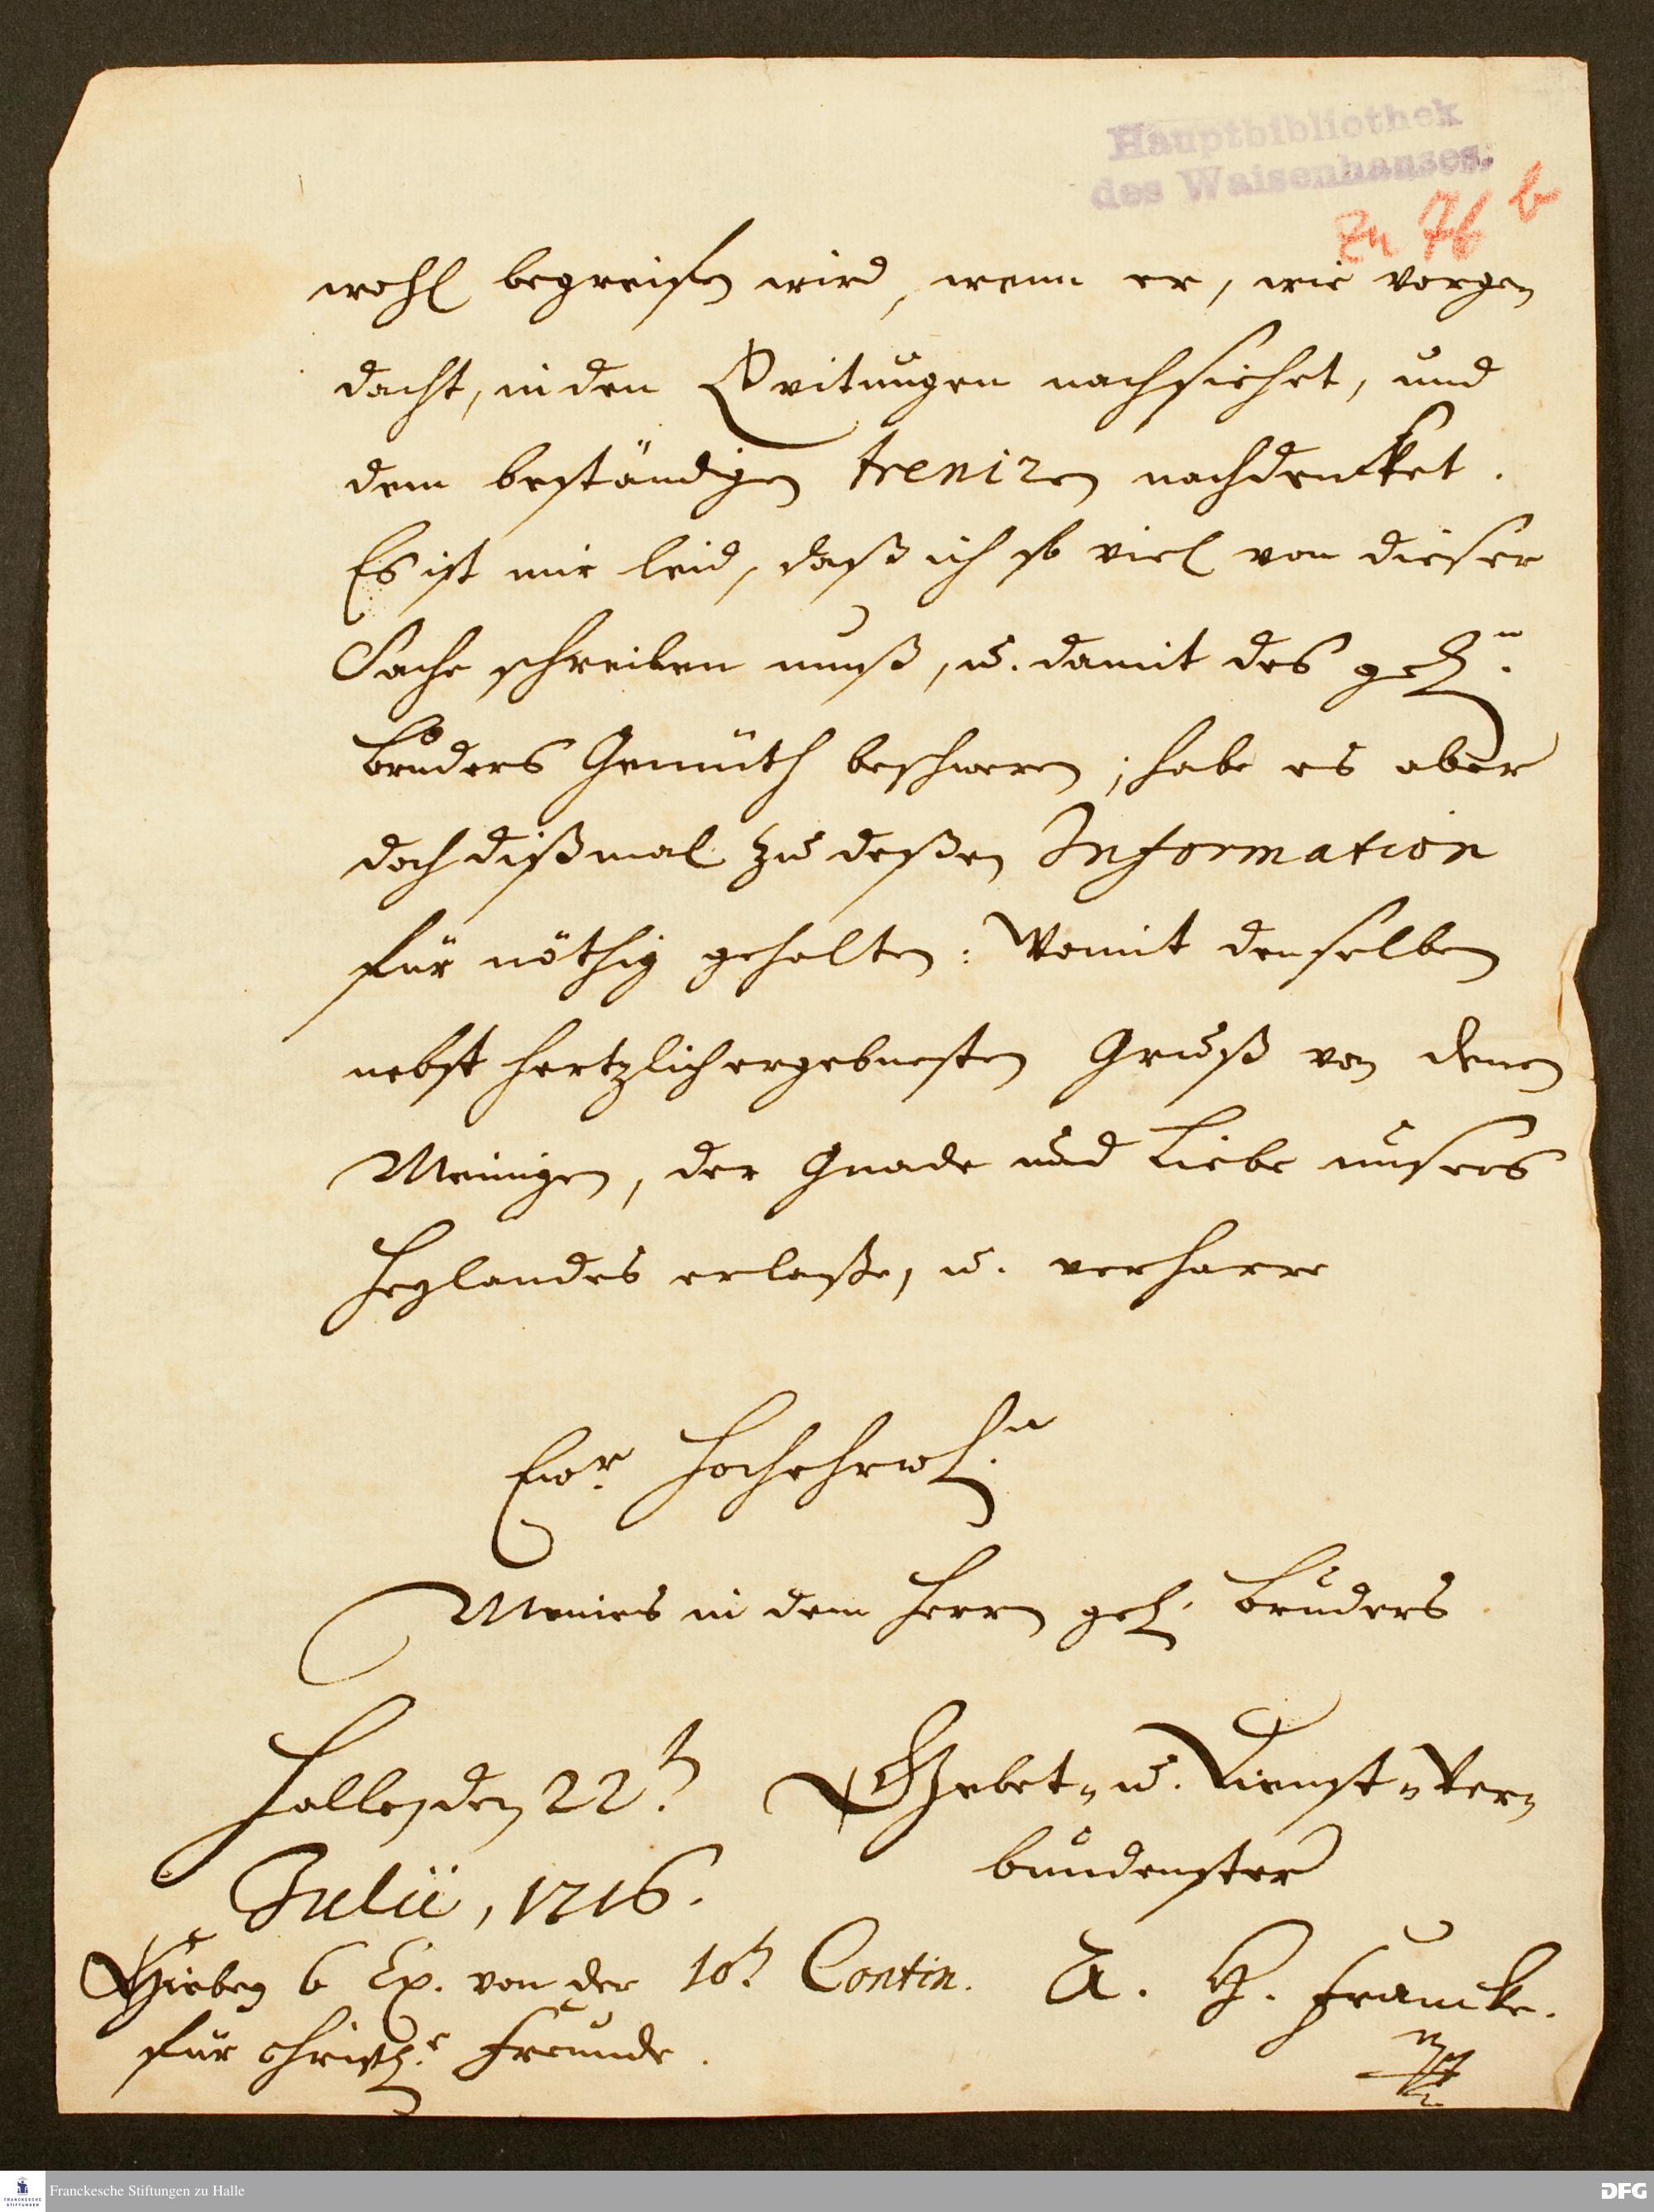 Hauptbibliothek
des Waisenhauses.
zu 76 b
wohl begreifen wird, wenn er, wie vorge=
dacht, in den Qvitungen nachsiehet, und
dem beständigen treniren nachdencket.
Es ist mir leid, daß ich so viel von dieser
Sache schreiben muß, u. damit des gel.n
Bruders Gemüth beschweren; habe es aber
doch dißmal zu deßen Information
für nöthig gehalten: Womit denselben
nebst hertzlich ergebnesten Gruß von denen
Meinigen, der Gnade und Liebe unsers
Heylandes erlaße, u. verharre
Ewr. Hochehrw.n
Meines in dem Herrn gel. Bruders
Halle, den 22.t
Gebet= u. Dienst= Ver=
bundenster
Julii, 1716.
Hiebey 6 Ex. von der 10.t Contin.
A. H. Francke.
für christl.e Freunde.
Franckesche Stiftungen zu Halle
DFG